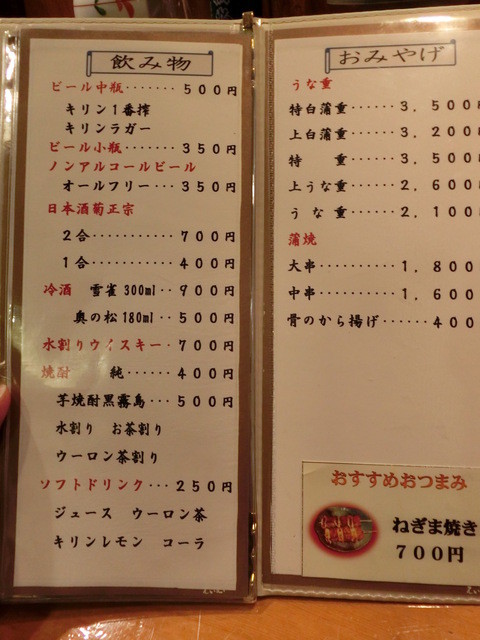 飲み物
ビール中瓶・・・・・・・５００円
キリン１番搾
キリンラガー
ビール小瓶・・・・・・・３５０円
ノンアルコールビール
オールフリー・・・３５０円
日本酒菊正宗
２合・・・・・・・・・・・７００円
１合・・・・・・・・・・・４００円
冷酒 雪雀300ml・・９００円
奥の松180ml・・５００円
水割りウイスキー・７００円
焼酎 純・・・・・・４００円
芋焼酎黒霧島・・・５００円
水割り お茶割り
ウーロン茶割り
ソフトドリンク・・・２５０円
ジュース ウーロン茶
キリンレモン コーラ
おみやげ
うな重
特白蒲重・・・・・・３，５００
上白蒲重・・・・・・３，２００
特 重・・・・・・３，５００
上うな重・・・・・・２，６００
うな重・・・・・・２，１００
蒲焼
大串・・・・・・・・・・１，８００
中串・・・・・・・・・・１，６００
骨のから揚げ・・・・・・４００
おすすめおつまみ
ねぎま焼き
７００円